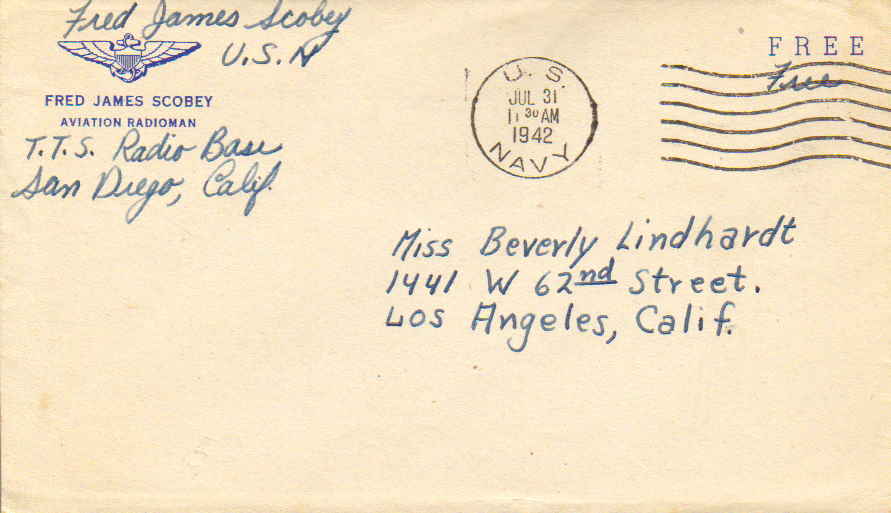 Fred James Scobey
U.S.N
FRED JAMES SCOBEY
AVIATION RADIOMAN
T.T.S. Radio Base
San Diego, Calif.
U.S
JUL 31
11 30 AM
1942
NAVY
FREE
Free
Miss Beverly Lindhardt
1441 W 62nd Street.
Los Angeles, Calif.